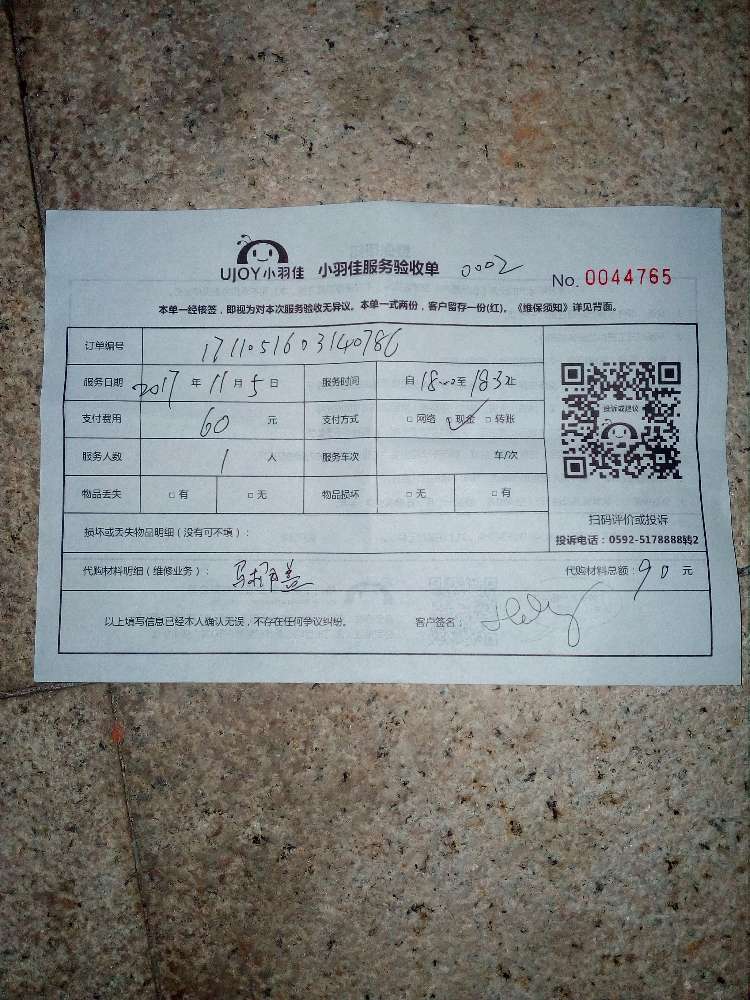 UJOY小羽佳 小羽佳服务验收单 0002 No. 0044765
本单一经核签，即视为对本次服务验收无异议。本单一式两份，客户留存一份(红)。《维保须知》详见背面。
订单编号 1711051603140786
服务日期 2017 年 11 月 5 日 服务时间 自 18:00 至 18:32 止
支付费用 60 元 支付方式 □ 网络 □ 现金 ✓ □ 转账
投诉或建议
服务人数 1 人 服务车次 车/次
物品丢失 □ 有 □ 无 物品损坏 □ 无 □ 有
扫码评价或投诉
损坏或丢失物品明细（没有可不填）：
投诉电话：0592-5178888转2
代购材料明细（维修业务）： 马桶盖 代购材料总额：90 元
以上填写信息已经本人确认无误，不存在任何争议纠纷。 客户签名：